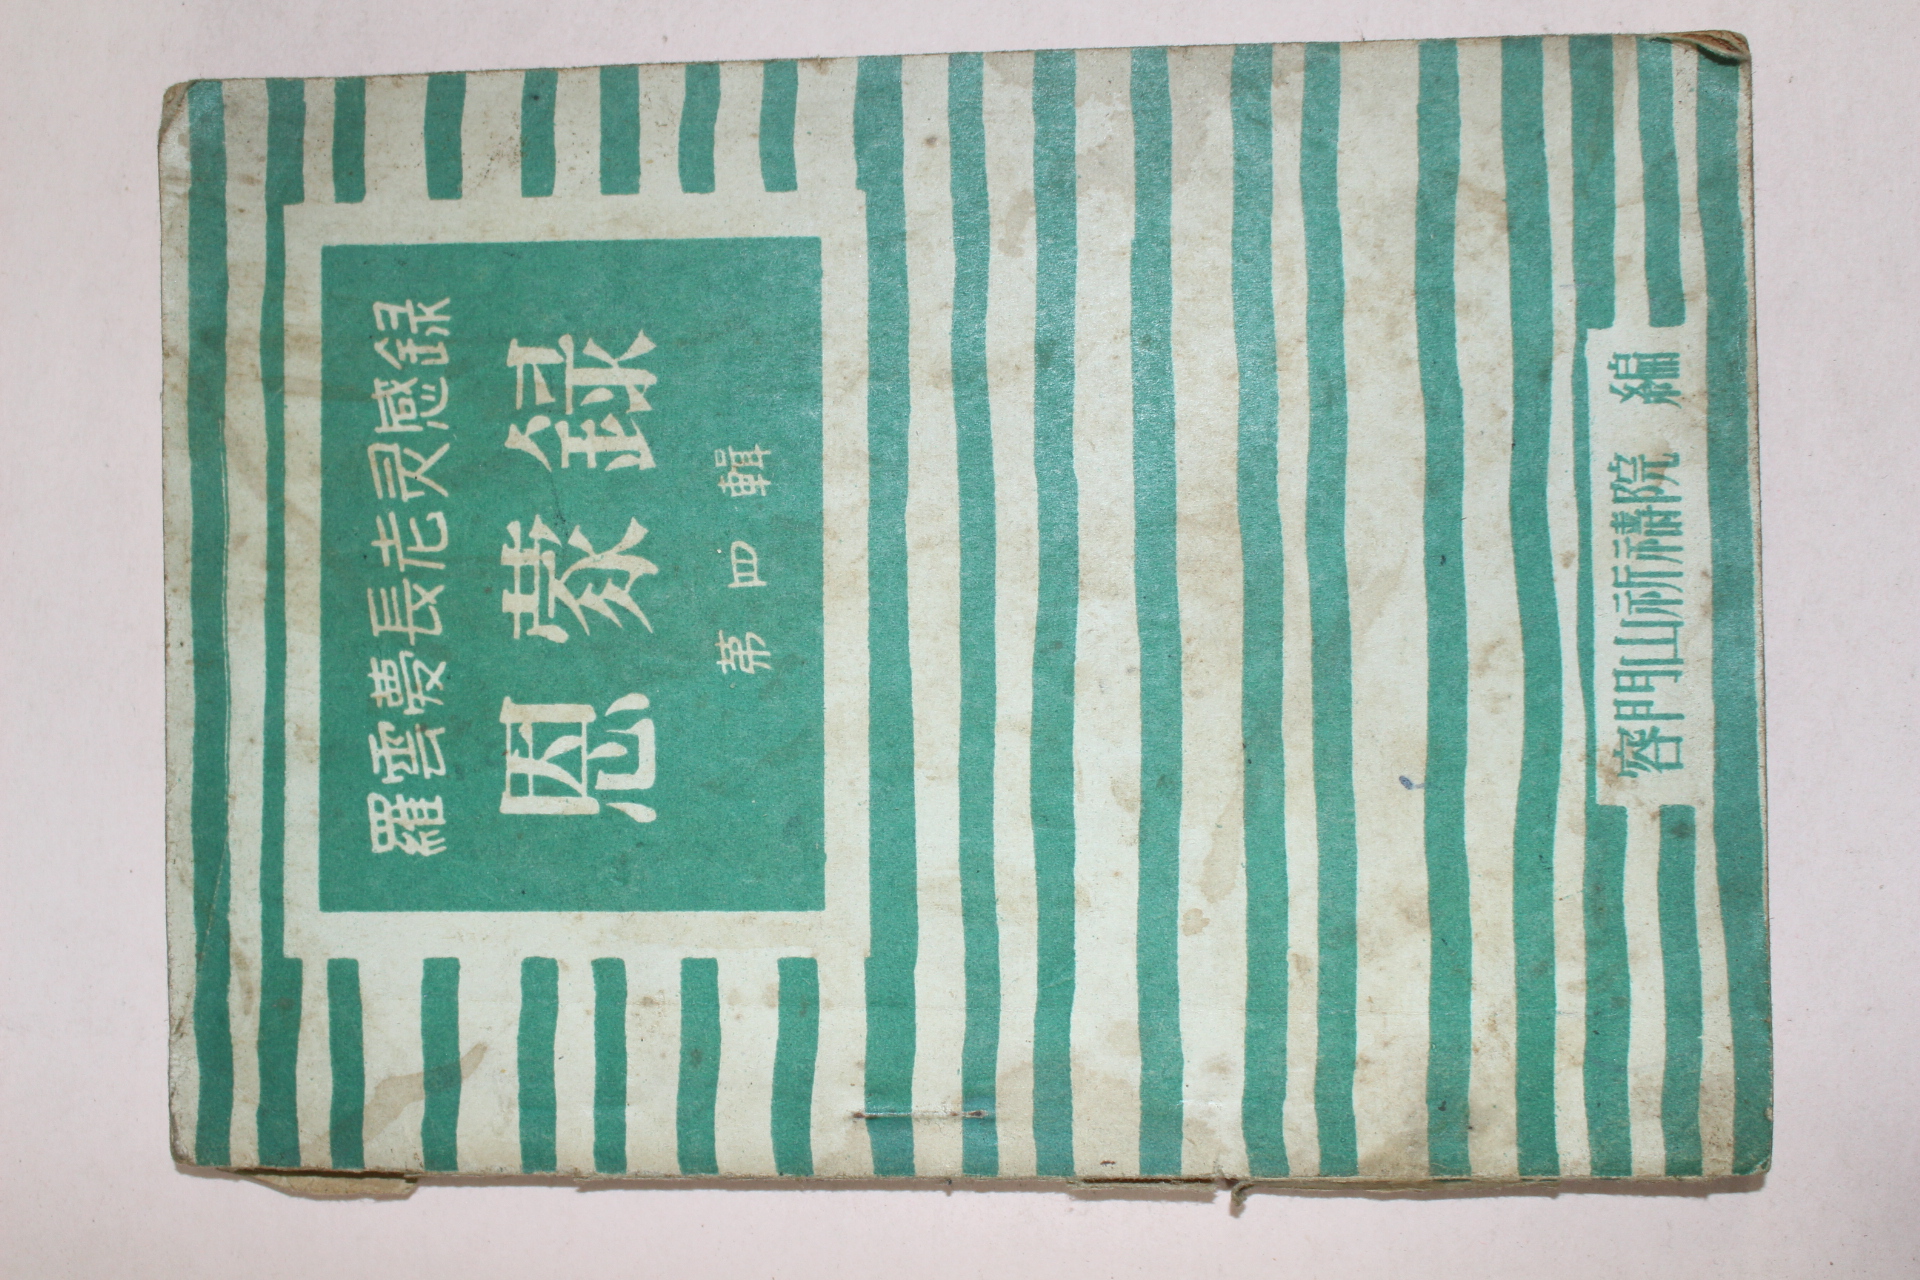 羅雲夢長老灵感錄
恩裟錄
第四輯
容門山祈禱院 編